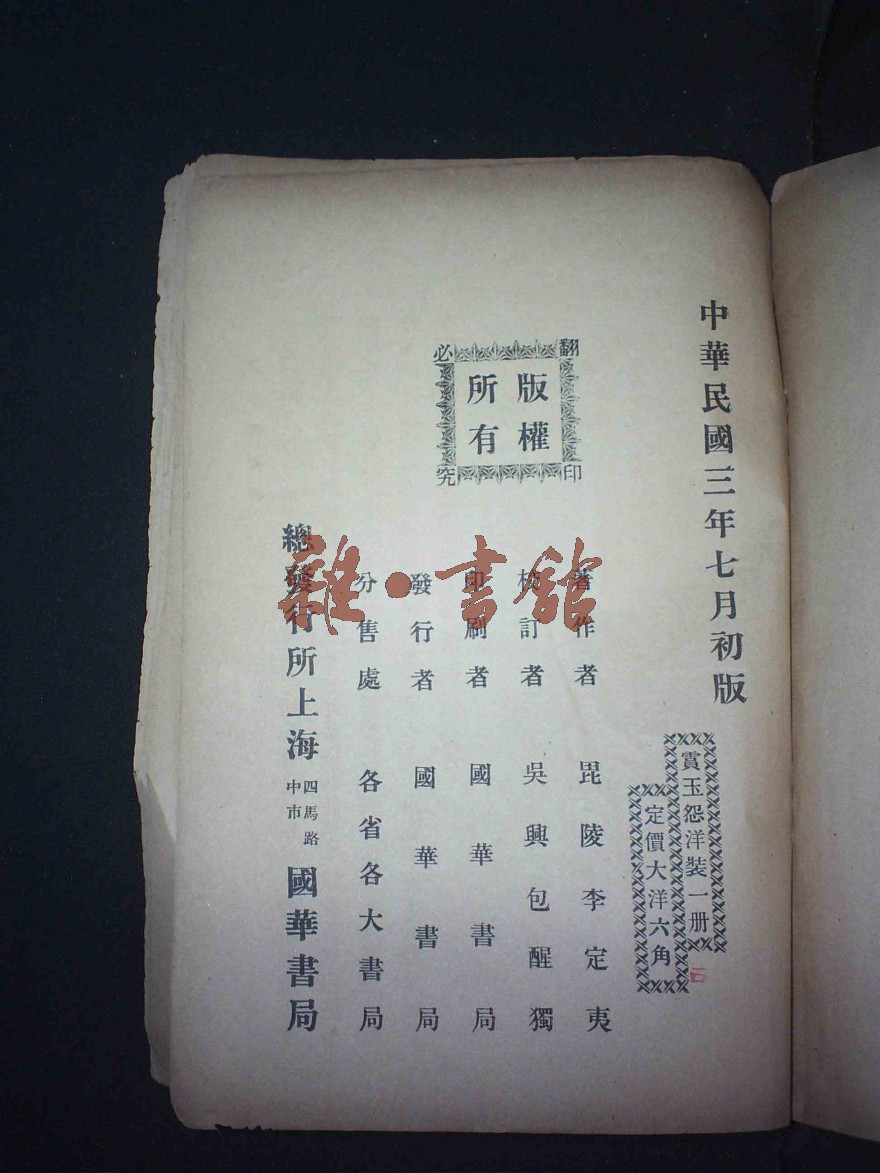 中華民國三年七月初版
賞玉怨洋裝一册
定價大洋六角
版權
所有
翻印
必究
著作者 毘陵李定夷
校訂者 吳興包醒獨
印刷者 國華書局
發行者 國華書局
分售處 各省各大書局
總發行所上海四馬路中市國華書局
雜·書館